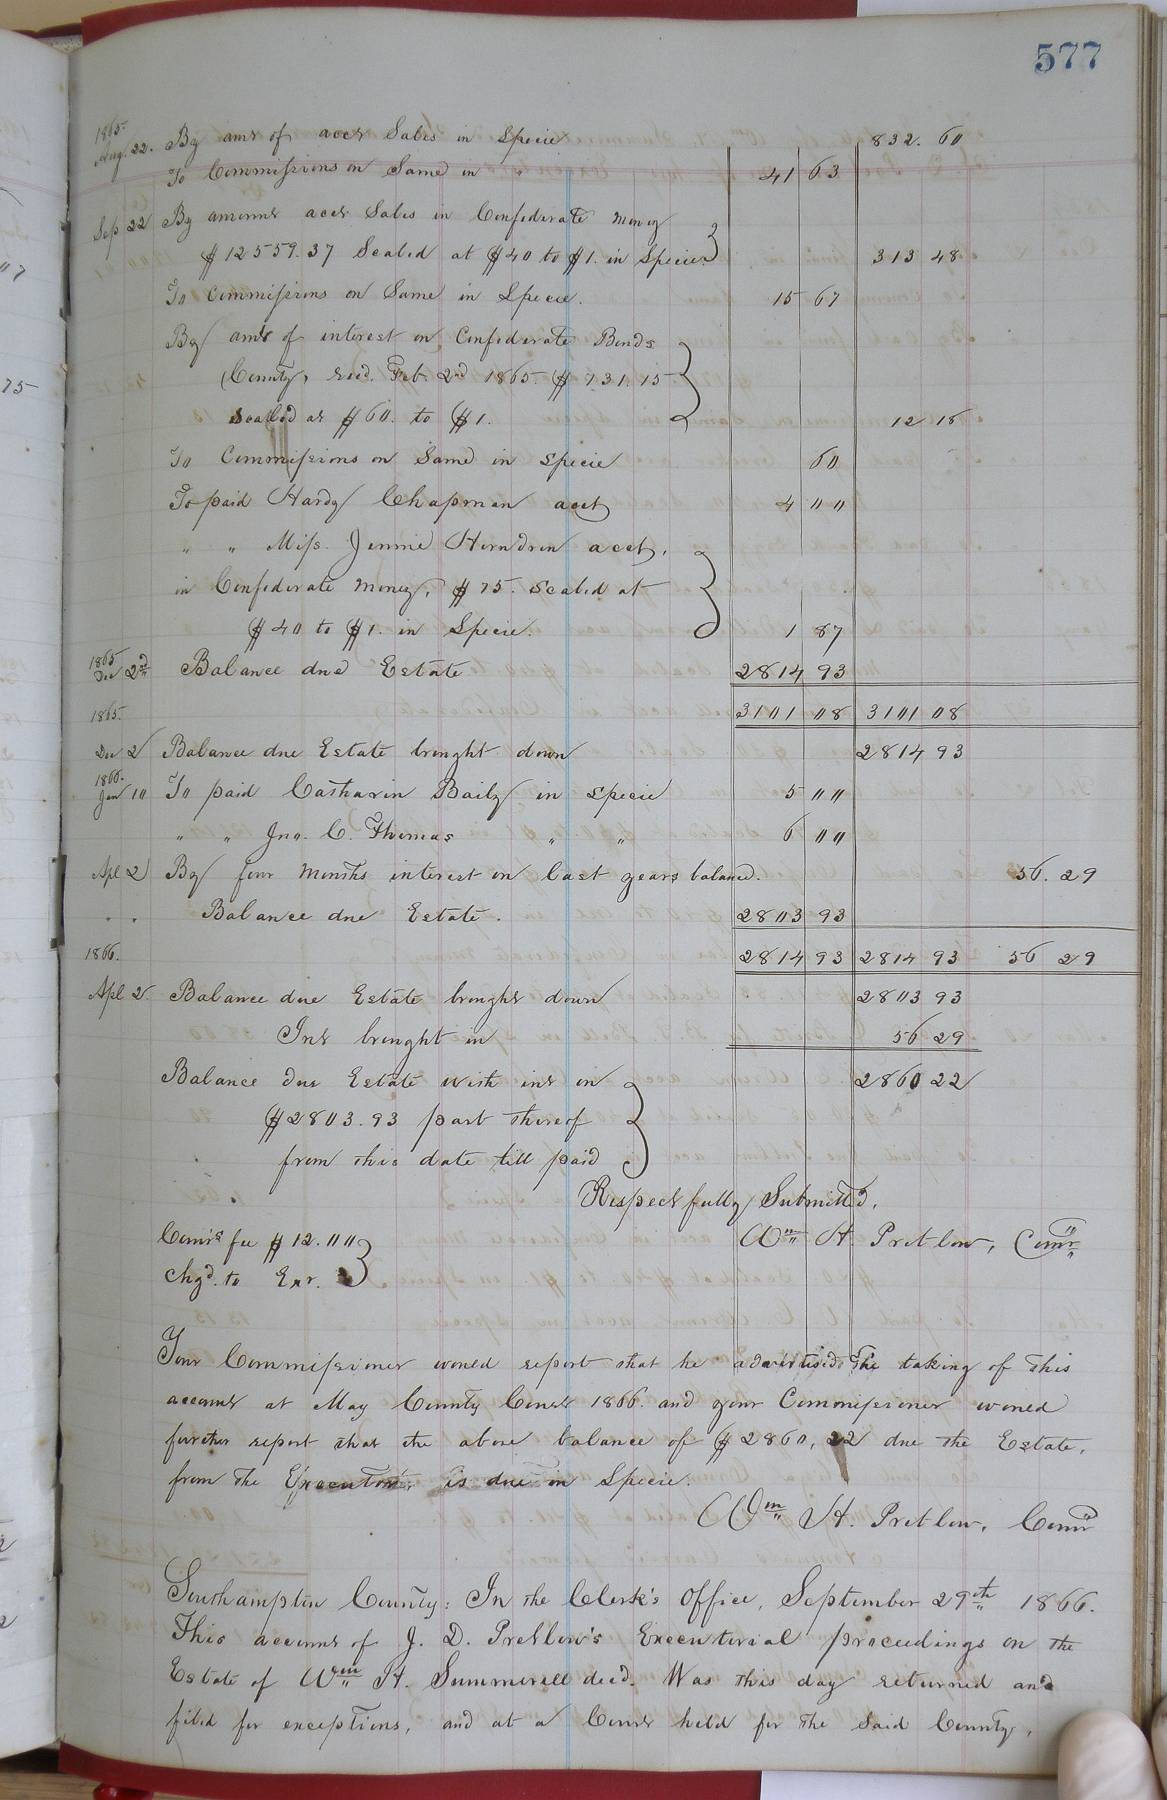 577
1865
Aug. 22. By amt of acct Sales in Specie 832. 60
To Commissions on Same in " 41 63
Sep 22 By amount acct Sales in Confederate money
$12559.37 Scaled at $40 to $1. in Specie. 313 48
To Commissions on Same in Specie. 15 67
By amt of interest on Confederate Bonds
(County) recd. Feb. 2nd 1865. $731.15
Scaled at $60. to $1. 12 18
To Commissions on Same in Specie 60
To paid Hardy Chapman acct 4 00
" " Miss. Jennie Herndren acct,
in Confederate money, $75. Scaled at
$40 to $1. in Specie. 1 87
1865
Dec 2nd Balance due Estate 2814 93
1865. 3101 08 3101 08
Dec 2 Balance due Estate brought down 2814 93
1866.
Jan 10 To paid Catharin Baily in specie 5 00
" " Jno. C. Thomas " " 6 00
Apl 2 By four months interest on last years balance. 56. 29
" " Balance due Estate. 2803 93
1866. 2814 93 2814 93 56 29
Apl 2. Balance due Estate brought down 2803 93
Int brought in 56 29
Balance due Estate with int on 2860 22
$2803.93 part thereof
from this date till paid
Respectfully Submitted,
Com's fee $12.00 Wm H. Pretlow, Comr
Chgd. to Exr.
Your Commissioner would report that he advertised the taking of this
account at May County Court 1866. and your Commissioner would
further report that the above balance of $2860,22 due the Estate,
from the Executor, is due in Specie.
Wm H. Pretlow, Comr
Southampton County: In the Clerk's Office, September 29th 1866.
This account of J. D. Pretlow's Executorial proceedings on the
Estate of Wm H. Summerell decd. Was this day returned and
filed for exceptions, and at a Court held for the said County,